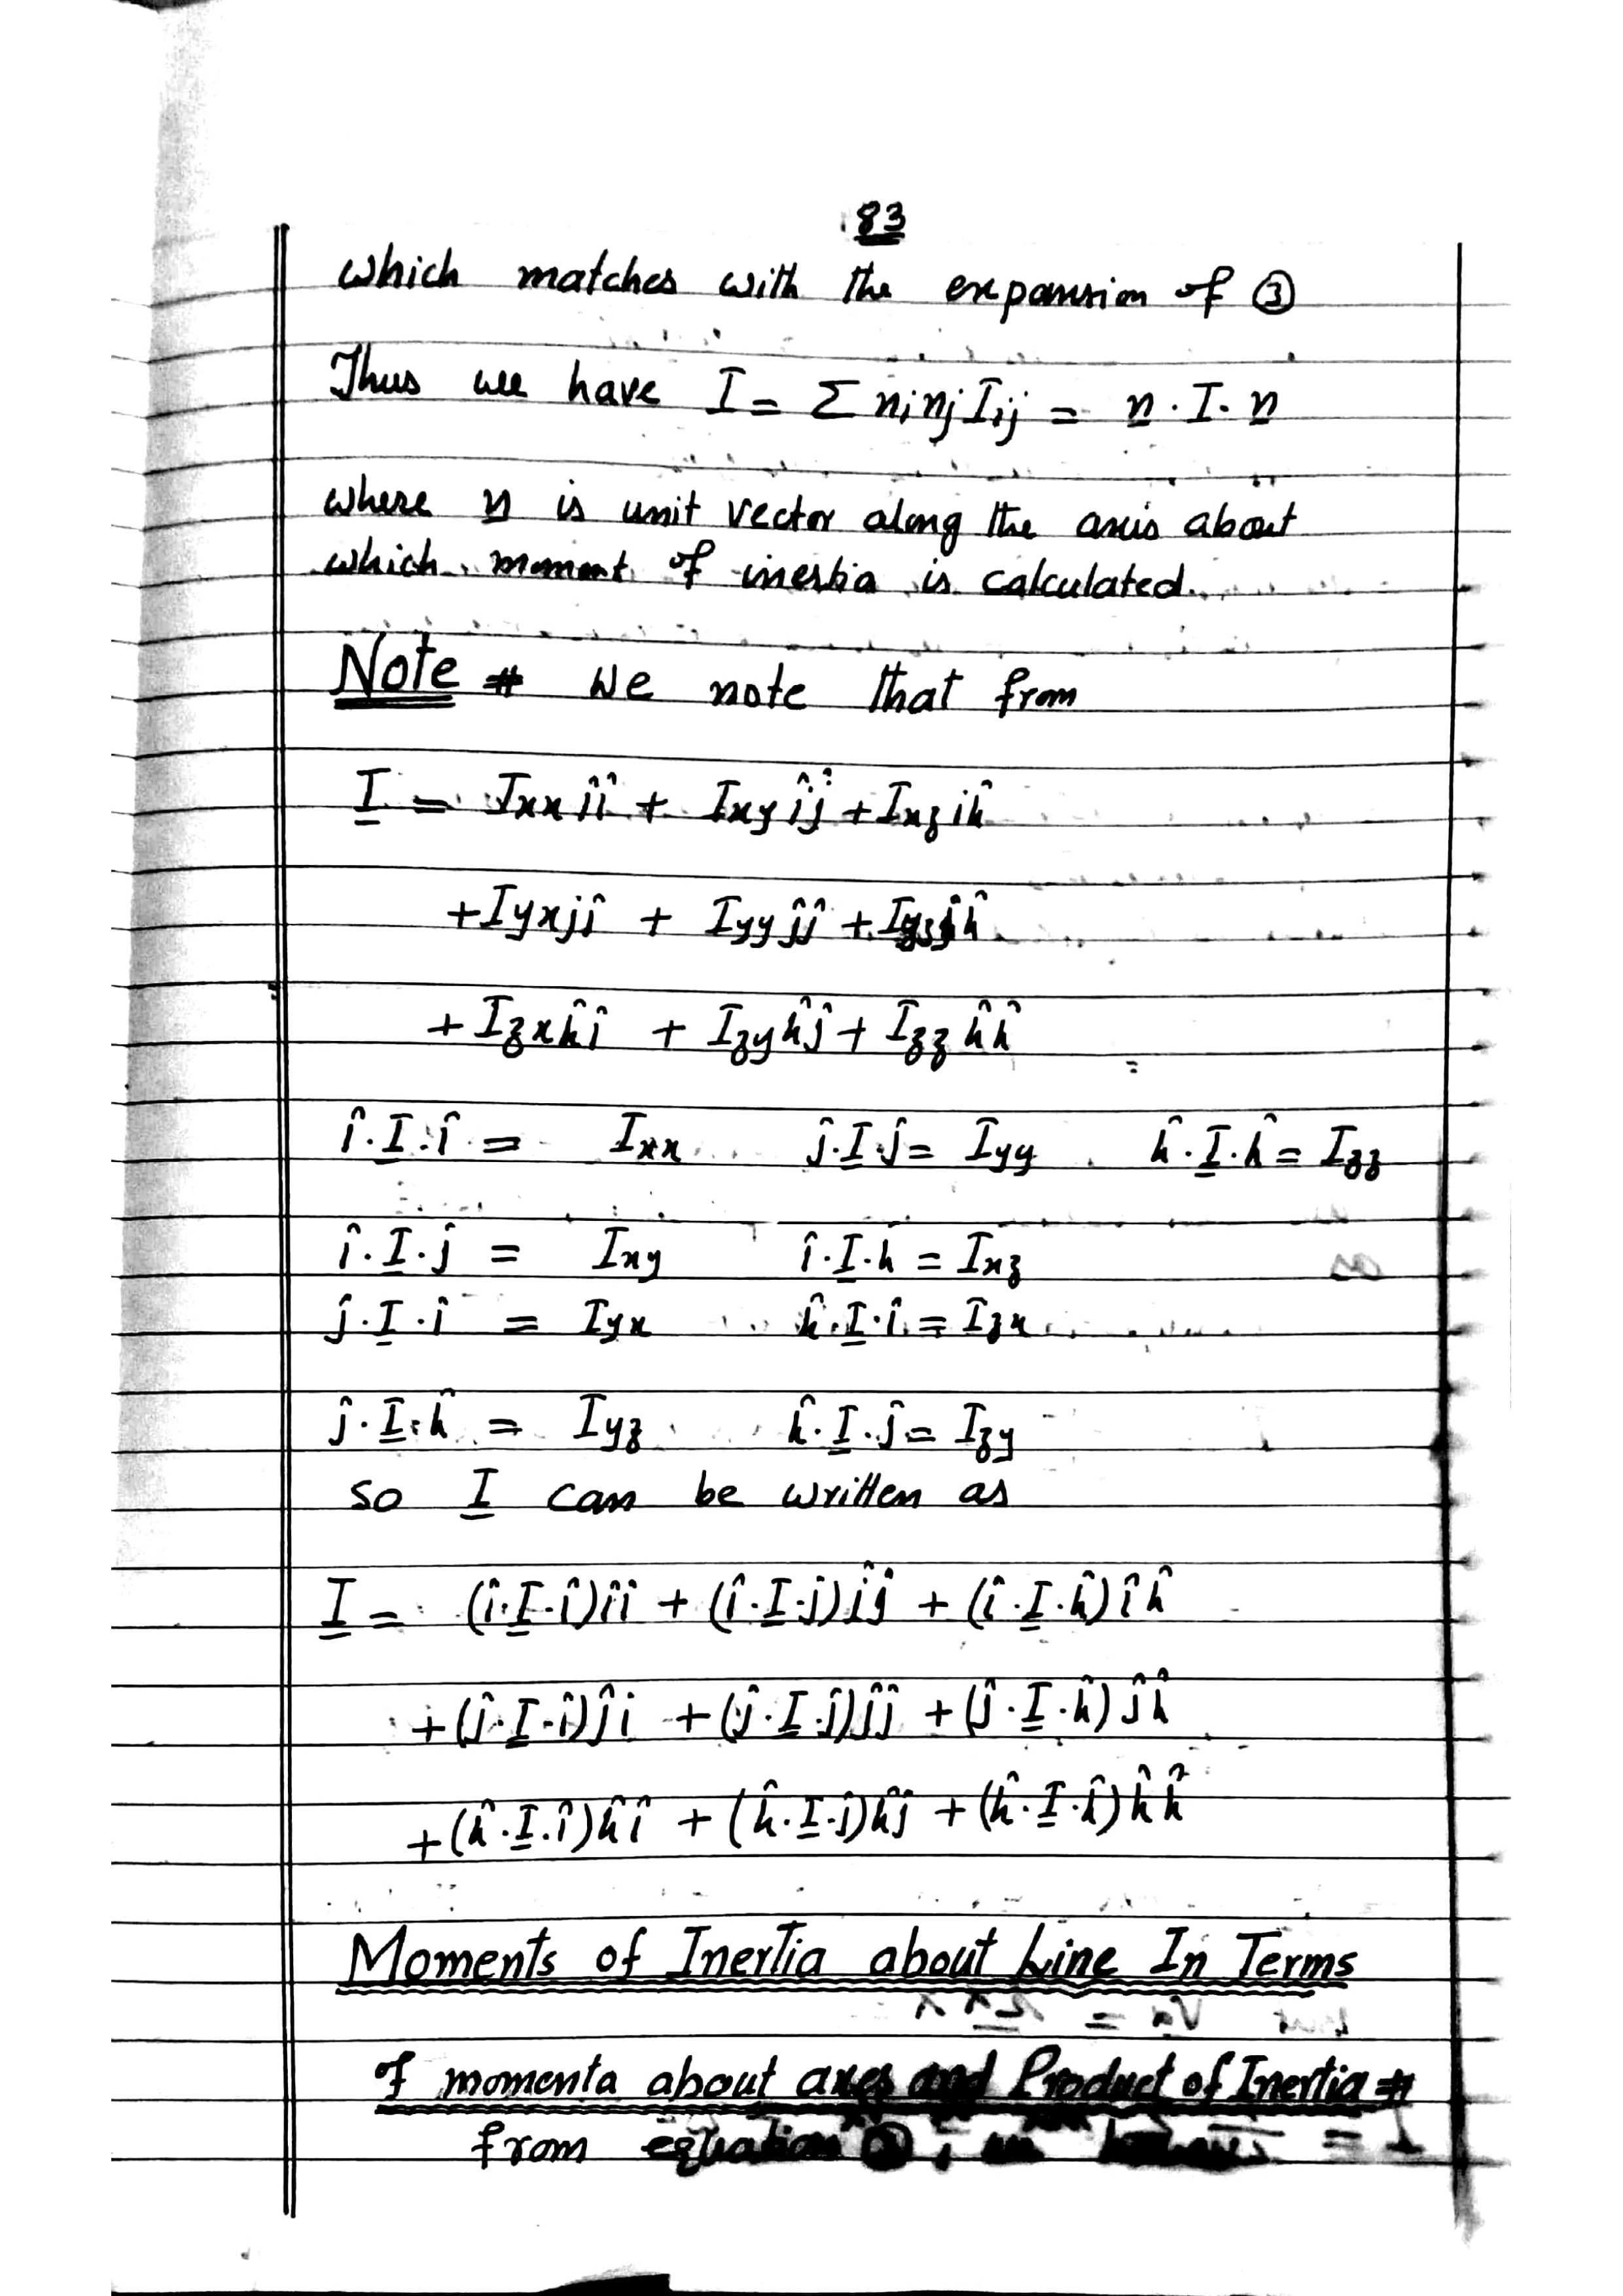 83
which matches with the expansion of ③
Thus we have I = Σ ninj Iij = n · I · n
where n is unit vector along the axis about
which moment of inertia is calculated.
Note # We note that from
I = Ixx îî + Ixy îĵ + Ixz ik̂
+ Iyx jî + Iyy ĵĵ + Iyz ĵk̂
+ Izx k̂î + Izy k̂ĵ + Izz k̂k̂
î · I · î = Ixx ĵ · I · ĵ = Iyy k̂ · I · k̂ = Izz
î · I · ĵ = Ixy î · I · k = Ixz
ĵ · I · î = Iyx k̂ · I · î = Izx
ĵ · I · k̂ = Iyz k̂ · I · ĵ = Izy
so I can be written as
I = (î · I · î) îî + (î · I · ĵ) îĵ + (î · I · k̂) îk̂
+ (ĵ · I · î) ĵi + (ĵ · I · ĵ) ĵĵ + (ĵ · I · k̂) ĵk̂
+ (k̂ · I · î) k̂î + (k̂ · I · ĵ) k̂ĵ + (k̂ · I · k̂) k̂k̂
Moments of Inertia about Line In Terms
of momenta about axes and Product of Inertia #
from equation